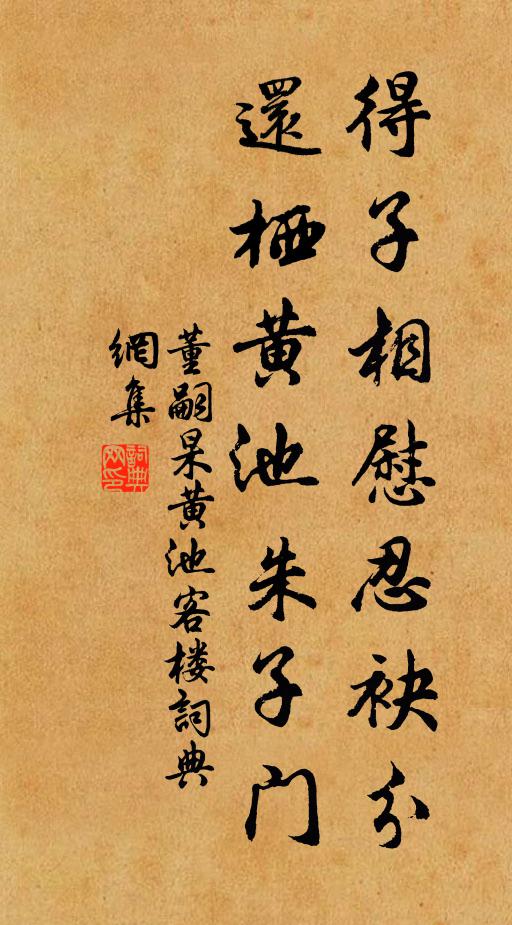 得子相慰忍袂分
還栖黄池朱子门
董嗣杲黄池客楼詞典
網集
詞典
网印